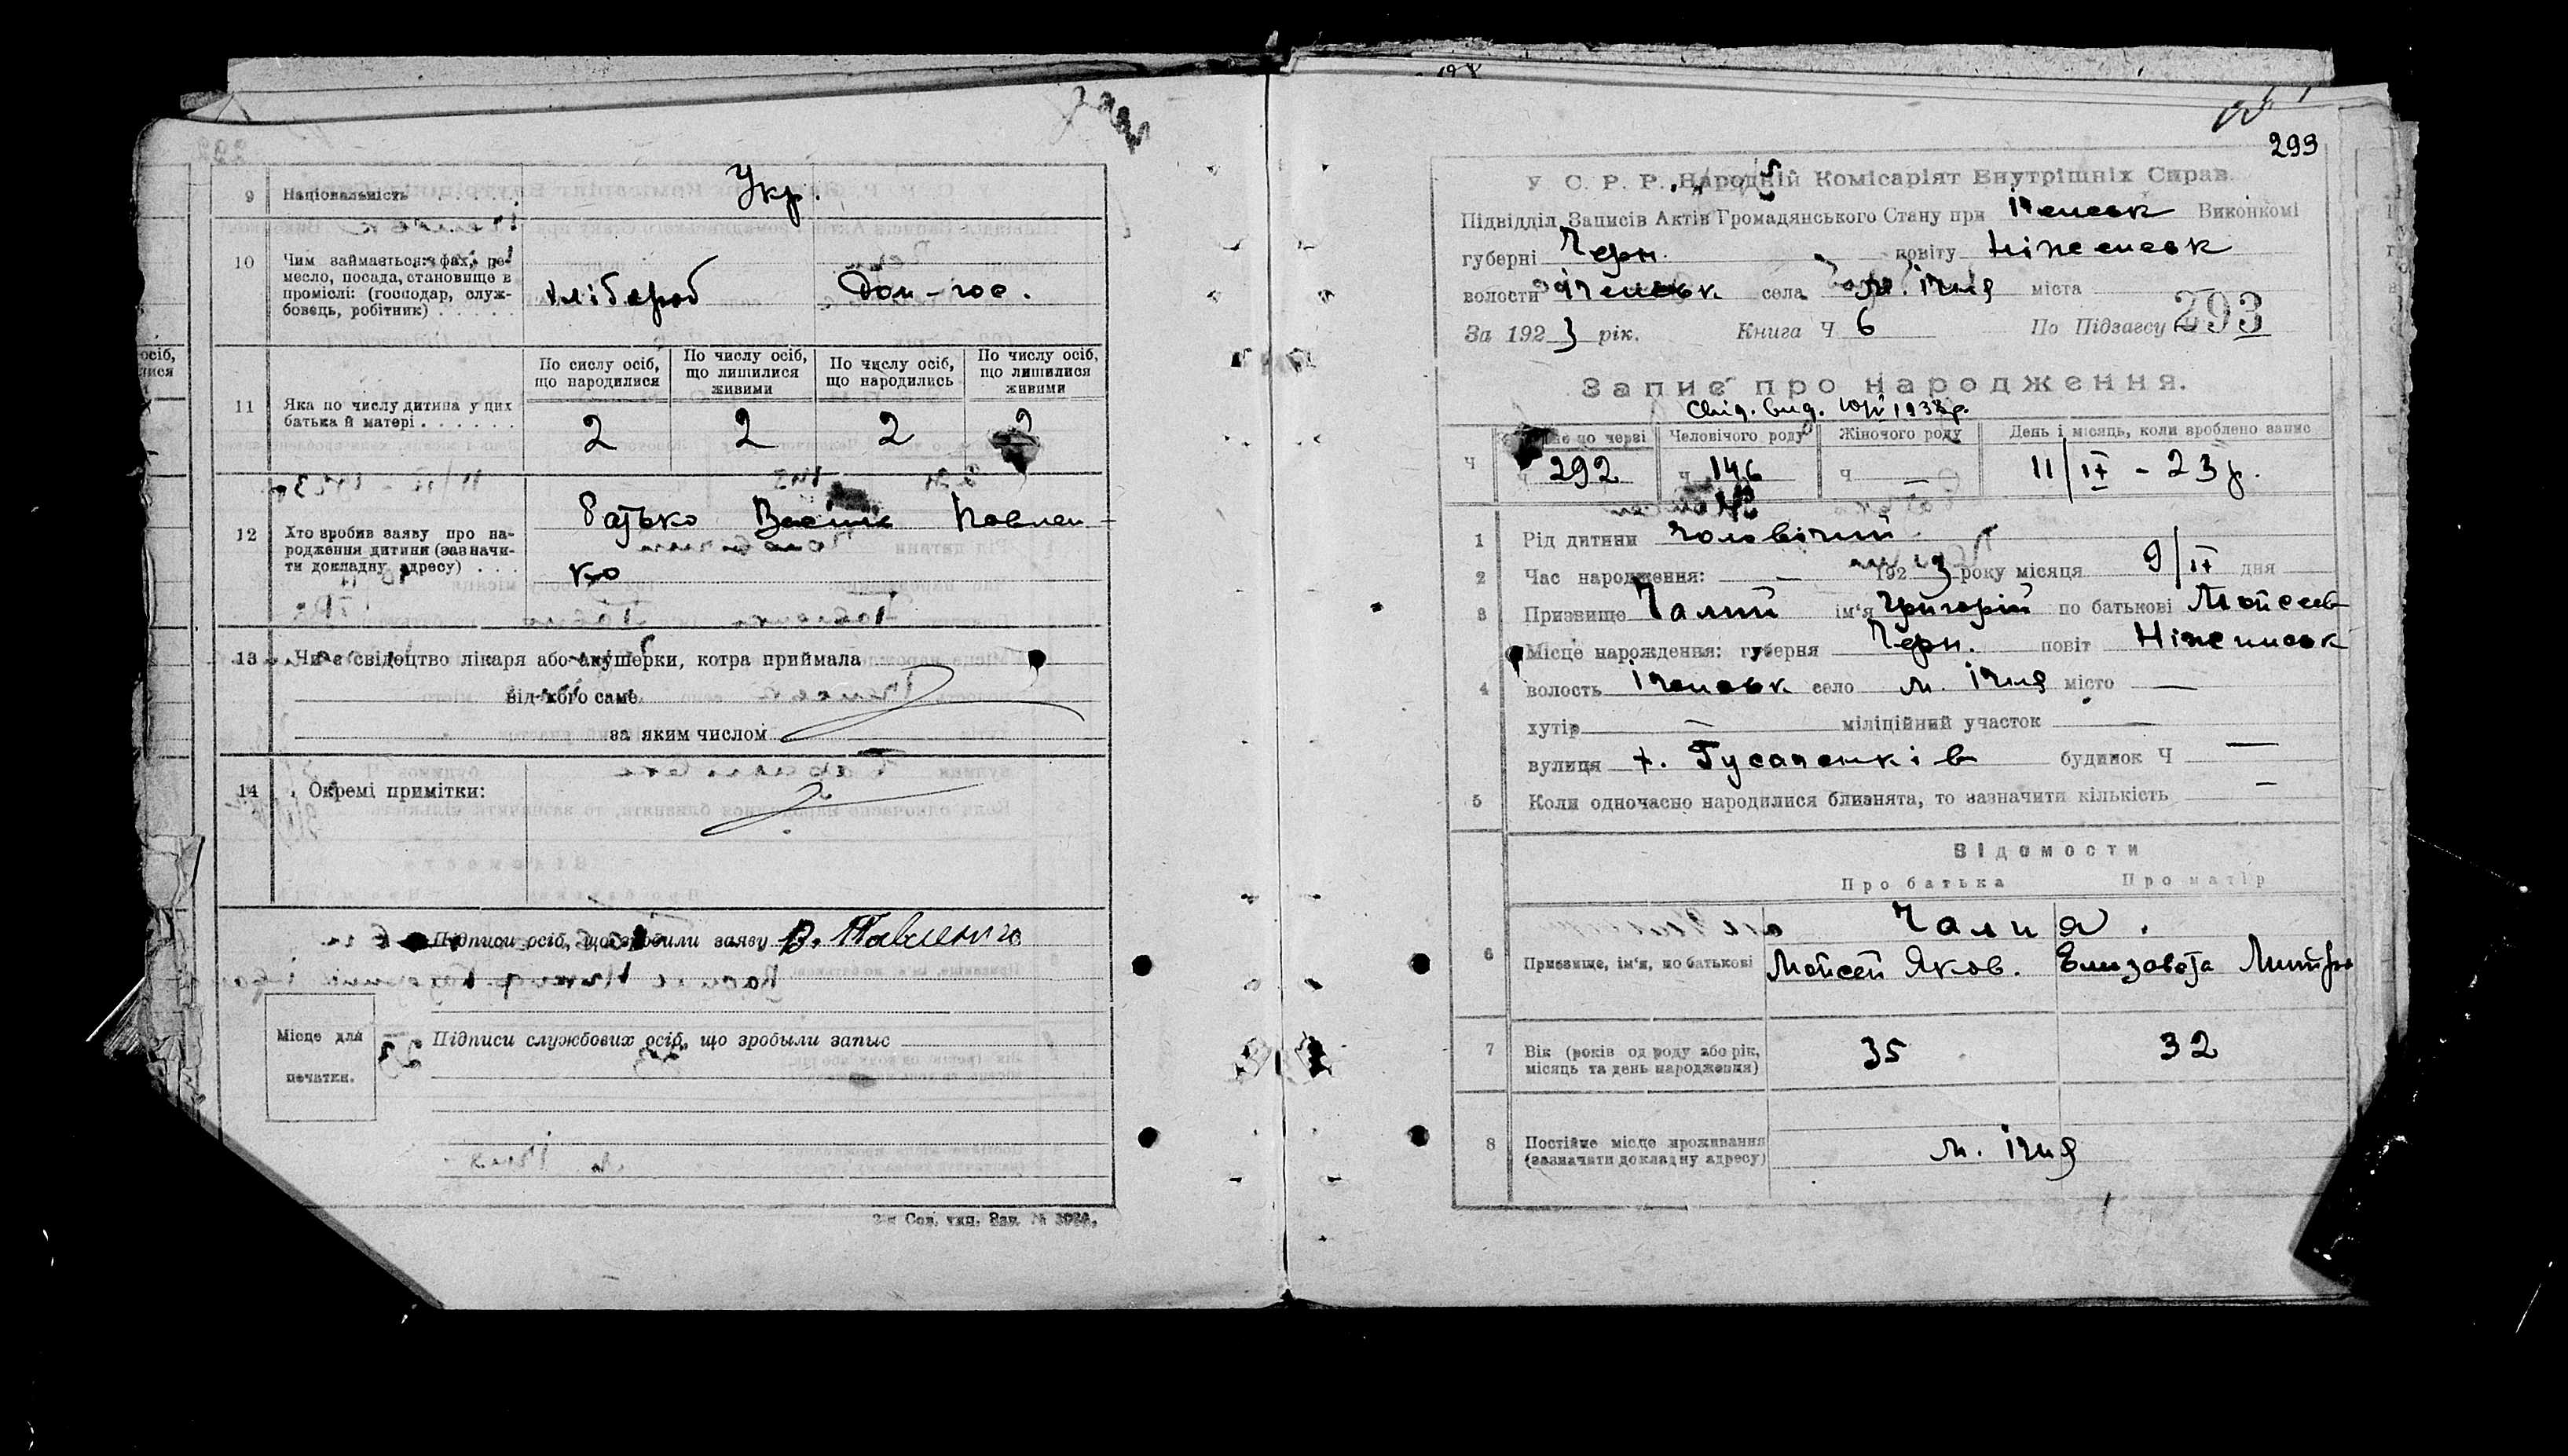 9 Національність . . . . . Укр.
10 Чим займається: фах, ре-
месло, посада, становище в
проміслі: (господар, служ-
бовець, робітник) . . . . .
хлібороб Дом-гос.
По сислу осіб, що народилися
По числу осіб, що лишилися живими
По числу осіб, що народились
По числу осіб, що лишилися живими
11 Яка по числу дитина у цих
батька й матері . . . . . .
2 2 2 2
12 Хто зробив заяву про на-
родження дитини (зазначи-
ти докладну адресу) . . .
батько Василь Павлен-
ко
13 Чи є свідоцтво лікаря або акушерки, котра приймала
від кого саме
за яким числом
14 Окремі примітки:
Підписи осіб, що зробили заяву В. Павленко
Місце для
печатки.
Підписи службових осіб, що зробыли запис
осіб,
лися
299
У С. Р. Р. Народній Комісаріят Внутрішніх Справ.
Підвідділ Записів Актів Громадянського Стану при Іченськ Виконкомі
губерні Черн. повіту Ніженськ
волости Іченськ села м. Ічня міста
За 1923 рік. Книга Ч 6 По Підзагсу Ч 293
Запис про народження.
Свід. вид. 1938р.
Ч
по черві
292
Человічого роду
ч 146
Жіночого роду
ч —
День і місяць, коли зроблено запис
11/IX - 23 р.
1 Рід дитини Чоловічий
2 Час народження: — 1923 року місяця 9/IX дня
3 Призвище Чалий ім'я Григорій по батькові Мойсеєв
4 Місце нарождення: губерня Черн. повіт Ніженськ
волость Іченськ село м. Ічня місто —
хутір — міліційний участок —
вулиця х. Гусаченків будинок Ч —
5 Коли одночасно народилися близнята, то зазначити кількість —
Відомости
Про батька Про матір
6 Призвище, ім'я, по батькові
Чалия.
Мойсей Яков. Елизавета Митро
7 Вік (років од роду або рік,
місяць та день народження)
35 32
8 Постійне місце проживання
(зазначати докладну адресу)
м. Ічня